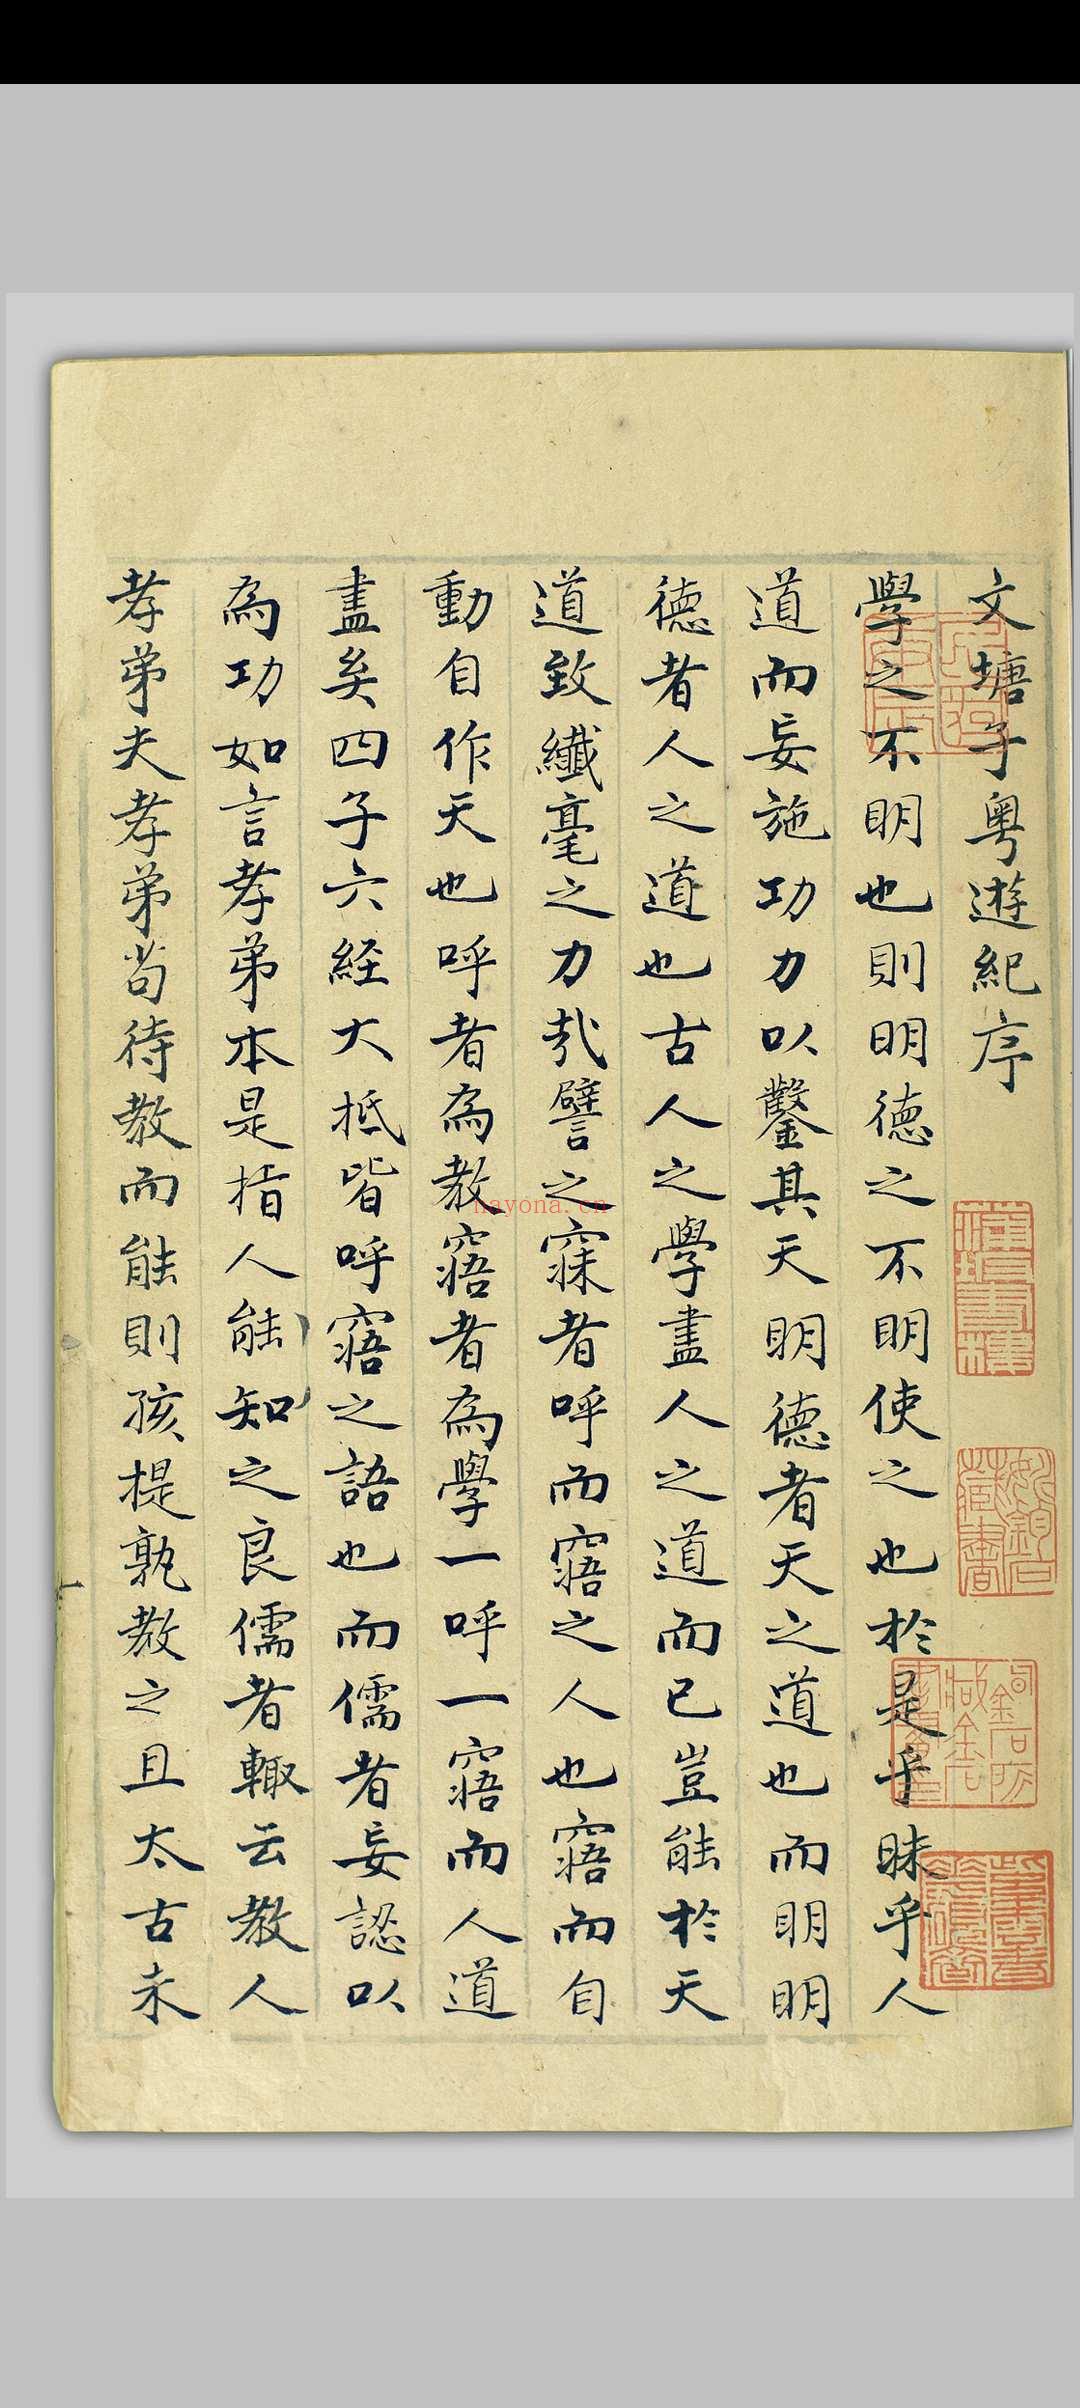 文塘子粵遊紀序
學之不明也則明德之不明使之也於是乎昧乎人
道而妄施功力以鑿其天明德者天之道也而明明
德者人之道也古人之學盡人之道而已豈能於天
道致纖毫之力哉譬之寐者呼而寤之人也寤而自
動自作天也呼者為教寤者為學一呼一寤而人道
盡矣四子六經大抵皆呼寤之語也而儒者妄認以
為功如言孝弟本是指人能知之良儒者輙云教人
孝弟夫孝弟尚待教而能則孩提孰教之且太古未
nayona.cn